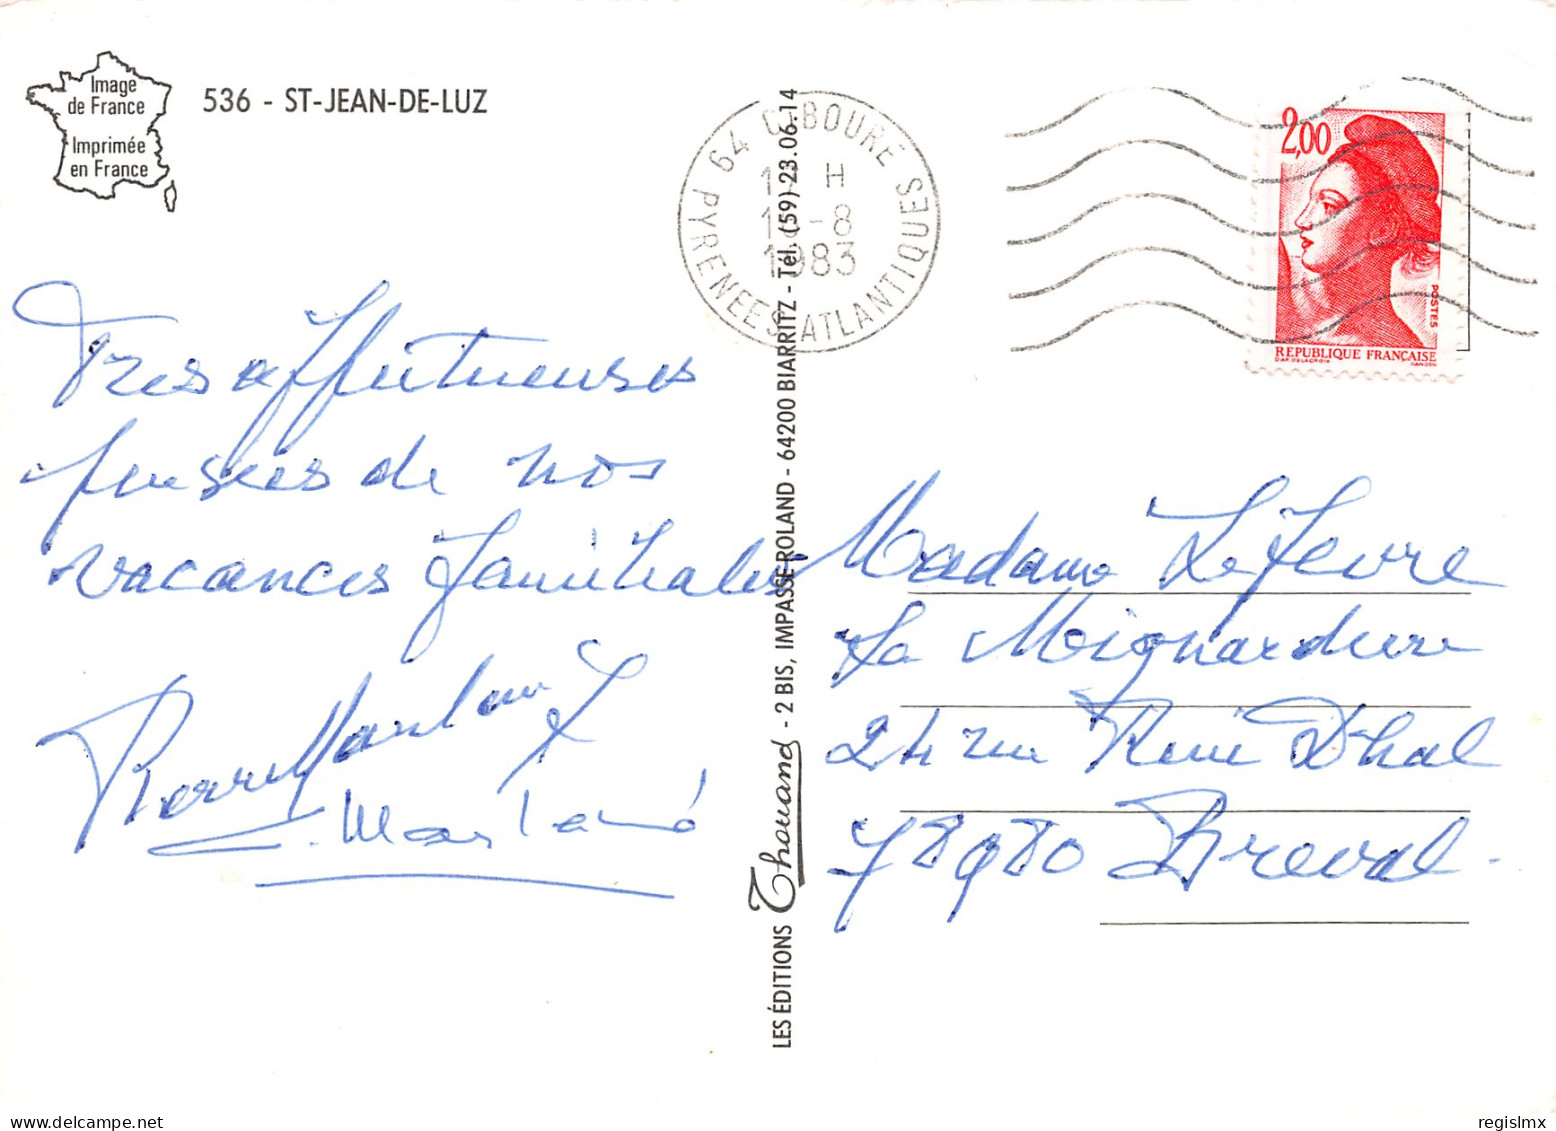 Image
de France
Imprimée
en France
536 - ST-JEAN-DE-LUZ
64 CIBOURE
H
-8
1983
PYRENEES ATLANTIQUES
2,00
POSTES
REPUBLIQUE FRANÇAISE
D'AP. DELACROIX GANDON
Tres affectueuses
pensées de nos
vacances familiales
LES ÉDITIONS Thouand - 2 BIS, IMPASSE ROLAND - 64200 BIARRITZ - Tél. (59) 23.06.14
Madame Lefevre
La Mignardiere
24 rue René Dhal
78980 Breval
regislmx